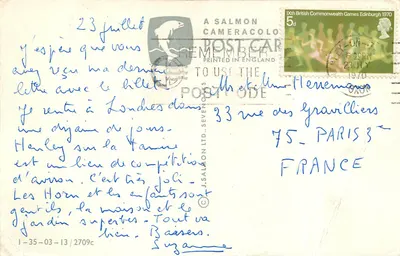 23 juillet
J'espère que vous
avez reçu ma dernière
lettre avec le billet
Je rentre à Londres dans
une dizaine de jours.
Henley sur la Tamise
est un lieu de compétition
d'aviron. C'est très joli.
Les Horn et les enfants sont
gentils, la maison et le
jardin superbes. Tout va
bien. Baisers.
Suzanne
1-35-03-13 / 2709c
A SALMON
CAMERACOLOR
POST CARD
PRINTED IN ENGLAND
© J. SALMON LTD., SEVENOAKS
REMEMBER
TO USE THE
POST CODE
5p
IXth British Commonwealth Games Edinburgh 1970
1970
OXON
M. et Mme
33 rue des Gravilliers
75 - PARIS 3e
FRANCE